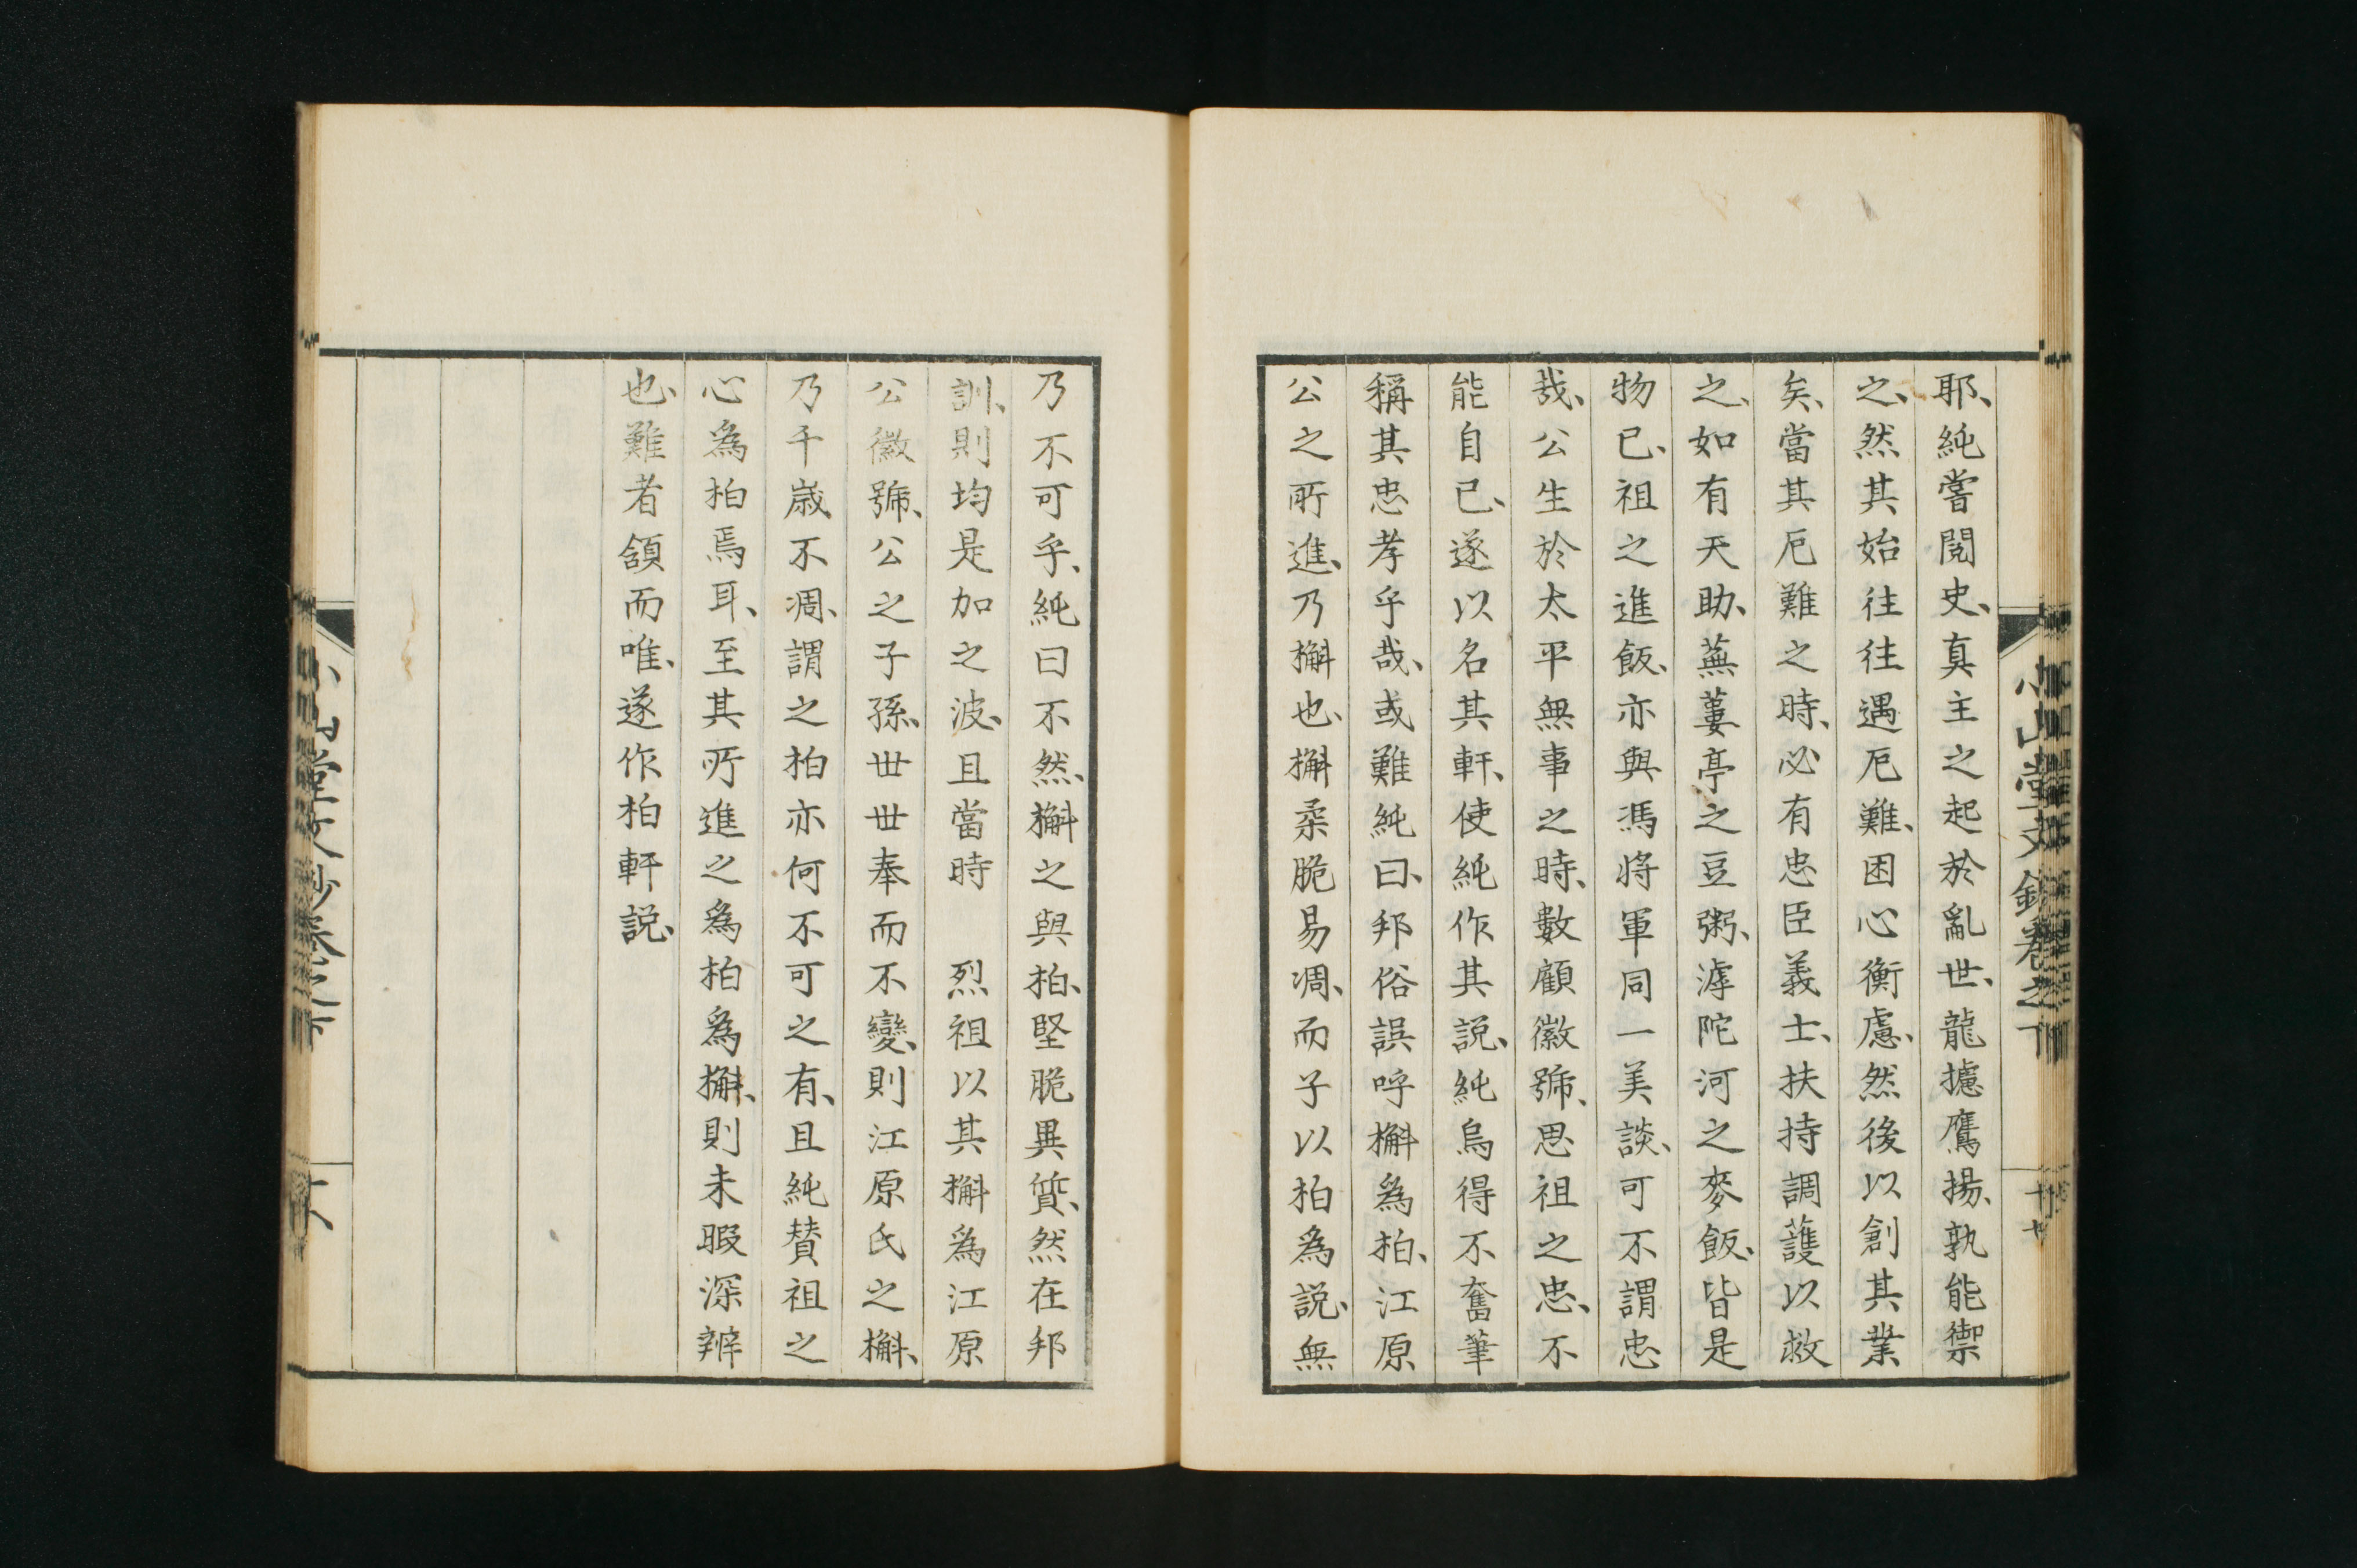 耶、純嘗閱史、真主之起於亂世、龍攄鷹揚、孰能禦
之、然其始往往遇厄難、困心衡慮、然後以創其業
矣、當其厄難之時、必有忠臣義士、扶持調護以救
之、如有天助、蕪蔞亭之豆粥、滹陀河之麥飯、皆是
物已、祖之進飯、亦與馮將軍同一美談、可不謂忠
哉、公生於太平無事之時、數顧徽號、思祖之忠、不
能自已、遂以名其軒、使純作其説、純烏得不奮筆
稱其忠孝乎哉、或難純曰、邦俗誤呼槲為柏、江原
公之所進、乃槲也、槲柔脆易凋、而子以柏為説、無
乃不可乎、純曰不然、槲之與柏、堅脆異質、然在邦
訓、則均是加之波、且當時　烈祖以其槲為江原
公徽號、公之子孫、世世奉而不變、則江原氏之槲、
乃千歳不凋、謂之柏亦何不可之有、且純賛祖之
心為柏焉耳、至其所進之為柏為槲、則未暇深辨
也、難者頷而唯、遂作柏軒説、
小山堂文鈔卷之下